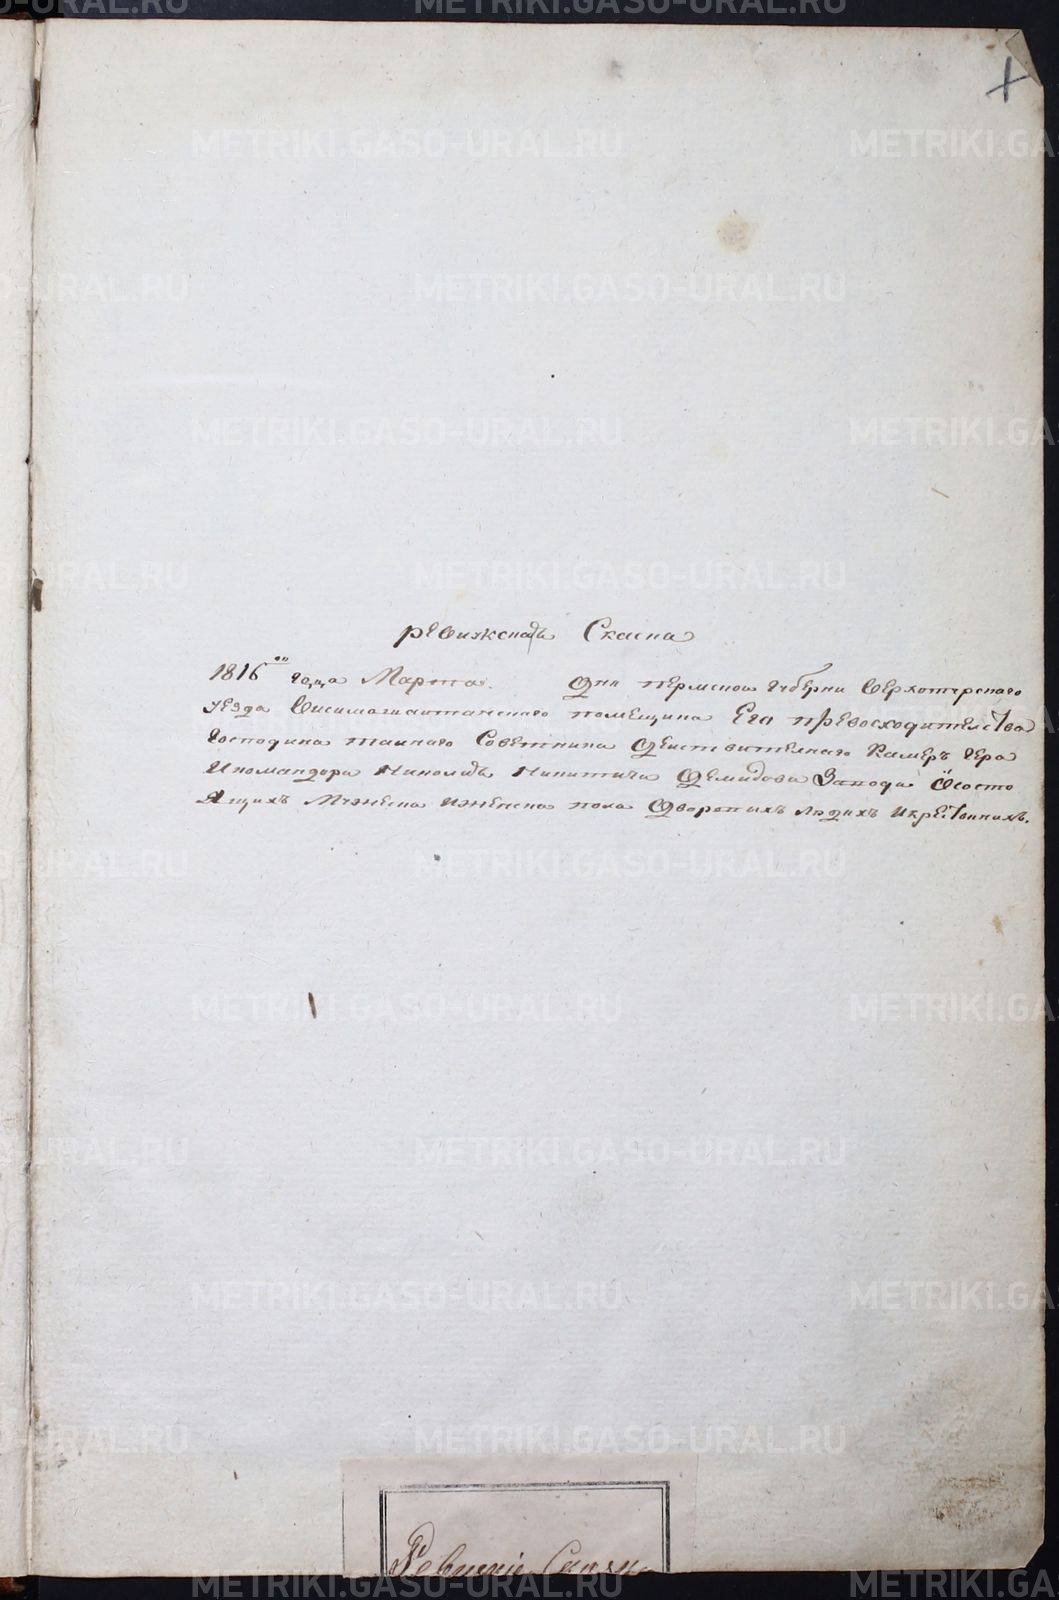 ревижская Скаска
1816го года Марта. Дня пермской губерни Верхотурского
уезда Висимошайтанского помещика Его превосходительства
Господина тайнаго Советника Действителнаго Камеръ гера
И командора Николая Никитича Демидова Завода Ососто
Ящихъ Мужеска иженска пола Дворовыхъ людяхъ икрестьянахъ.
Ревизкие Сказки
METRIKI.GASO-URAL.RU